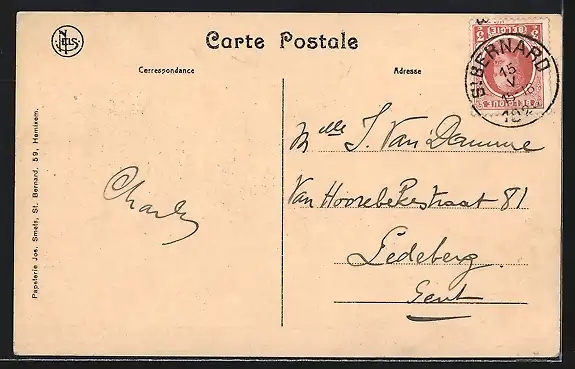 Carte Postale
Correspondance
Adresse
Melle J. Van Damme
Van Hoorebekestraat 81
Ledeberg
Gent
Charles
Papeterie Jos. Smets, St. Bernard, 59, Hemixem.
Nels
ST BERNARD
15
V
192
BELGIË